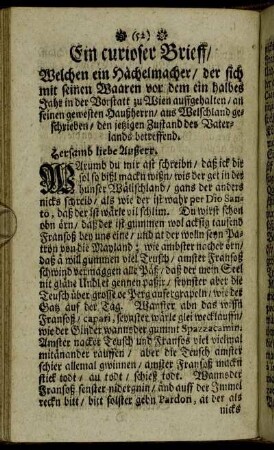 (52)
Ein curioser Brieff/
Welchen ein Hächelmacher/ der sich
mit seinen Waaren vor dem ein halbes
Jahr in der Vorstatt zu Wien auffgehalten/ an
seinen gewesten Haußherrn/ aus Welschland ge-
schrieben/ den jetzigen Zustand des Vater-
lands betreffend.
liebe Außerr.
WArumb du mir ast schreibn/ daß ick die
sol so bißl mackn wißn/ wis der get in des
hunser Wällschland/ gans der anders
nicks schreib/ als wie der ist wahr per Dio San-
to, daß der ist wärle vil schlim. Du wirst schon
obn ärn/ daß der ist gummen wol ackßig tausend
Fransoß bey uns eine/ und at der woln seyn Pa-
tron von die Mayland; wie ambster nacher örn/
daß à will gummen viel Teusch/ amster Fransoß
schwind vermaggen alle Päß/ daß der mein Seel
mit gläne Undlet gennen paßir/ seynster aber die
Teusch über grosse Perg aufergrapeln/ wie der
Gaß auf der Tag. Wannster abn daß wißn
Fransoß/ capari, seynster wärle glei weckläuffn/
wie der Ginder wannsder gummt Spazzacamin.
Amster nacker Teusch und Fransos viel vielmal
mitänander rauffen/ aber die Teusch amster
schier allemal gwinnen/ amster Franson mackn
stick todt/ au todt/ schieß todt. Wannsder
Franson fenster nidergnin/ und auff der Immel
reckn bitt/ bitt solster gebn Pardon, at der als
nicks